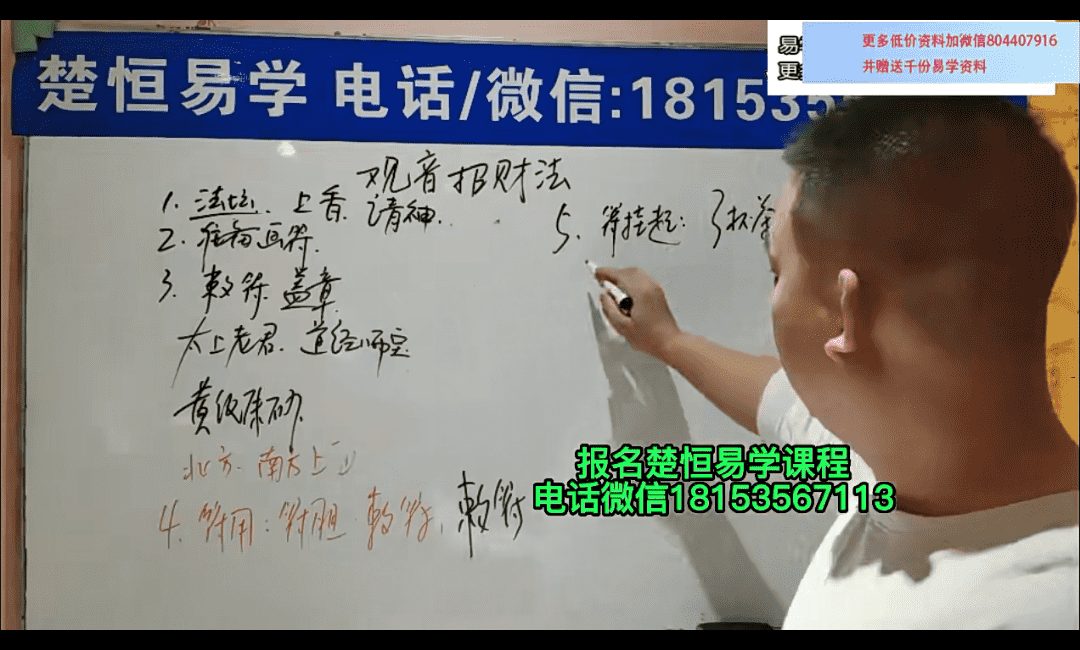 楚恒易学 电话/微信:181535
易
更
更多低价资料加微信804407916
并赠送千份易学资料
观音招财法
1. 法坛. 上香 请神.
2. 画符.
3. 敕符. 盖章
太上老君. 道经师宝
黄纸朱砂.
北方. 南方上
4. 符用: 符胆. 敕符. 敕符
5. 符挂起: 3杯茶
报名楚恒易学课程
电话微信18153567113